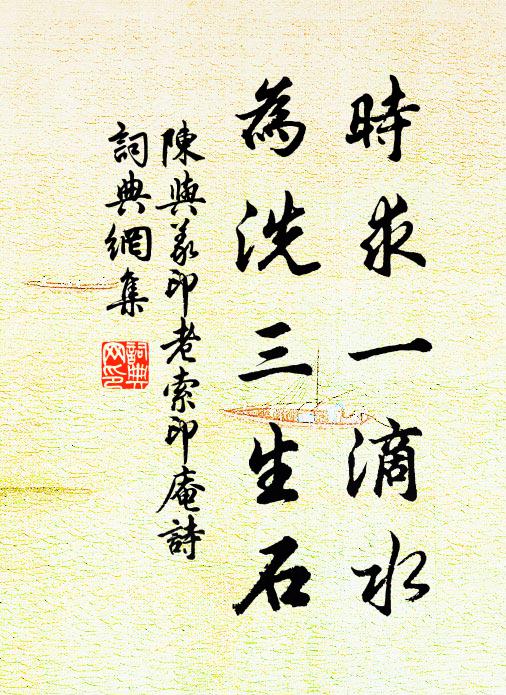 時求一滴水
為洗三生石
陳與義印老索印庵詩
詞典網集
詞典
网印